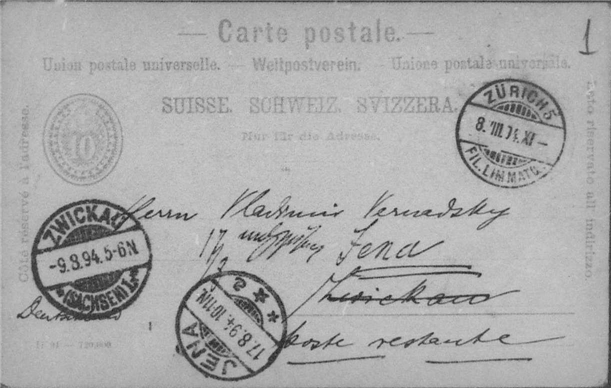 — Carte postale. —
1
Union postale universelle. — Weltpostverein. — Unione postale universale.
SUISSE. SCHWEIZ. SVIZZERA.
Nur für die Adresse.
10
Côté réservé à l'adresse.
Lato riservato all'indirizzo.
ZÜRICH 5
8. VIII. 94. XI –
FIL. LIMMATQ.
Herrn Vladimir Vernadsky
17/8
Jena
ZWICKAU
-9.8.94.5-6N
(SACHSEN) 1.
Zwickau
Deutschland
JENA
17.8.94.10-11N.
* * 2
poste restante